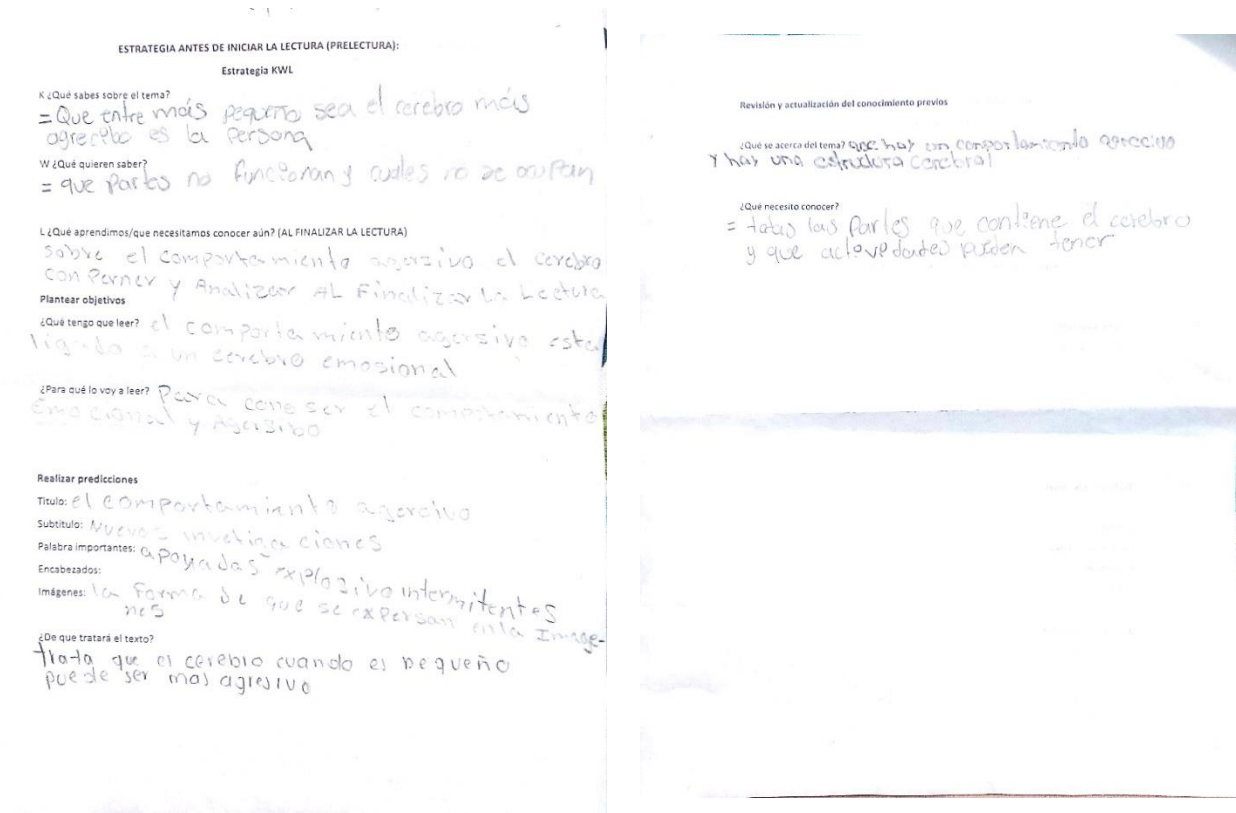 ESTRATEGIA ANTES DE INICIAR LA LECTURA (PRELECTURA):
Estrategia KWL
K ¿Qué sabes sobre el tema?
= Que entre más pequeño sea el cerebro más
agrecebo es la persona
W ¿Qué quieren saber?
= que partes no funcionan y cuales no se ocupan
L ¿Qué aprendimos/que necesitamos conocer aún? (AL FINALIZAR LA LECTURA)
sobre el comportamiento agersivo el cerebro
con Perner y Analizar AL Finalizar La Lectura
Plantear objetivos
¿Qué tengo que leer? el comportamiento agersivo esta
ligado a un cerebro emosional
¿Para qué lo voy a leer? Para coneser el comportamiento
Emocional y Agersibo
Realizar predicciones
Titulo: el comportamiento agercivo
Subtitulo: Nuevos investiga ciones
Palabra importantes: apoyadas explozivo intermitentes
Encabezados:
Imágenes: la forma de que se expersan en la Image-
nes
¿De que tratará el texto?
trata que el cerebro cuando es pequeño
puede ser mas agresivo
Revisión y actualización del conocimiento previos
¿Qué se acerca del tema? que hay un comportamiento agreccivo
Y hay una estructura cerebral
¿Qué necesito conocer?
= todas las partes que contiene el cerebro
y que pueden tener